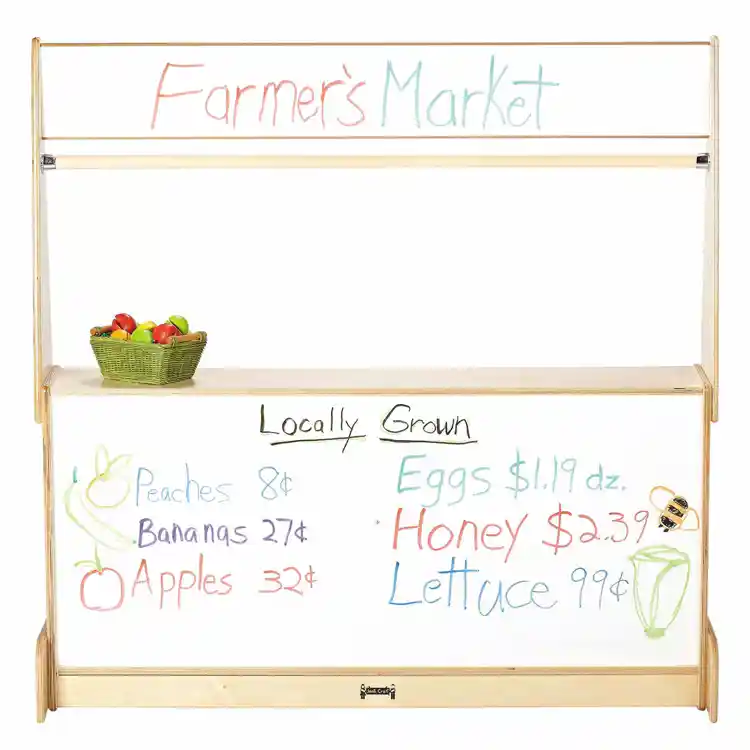 Farmer's Market
Locally Grown
Peaches 8¢
Bananas 27¢
Apples 32¢
Eggs $1.19 dz.
Honey $2.39
Lettuce 99¢